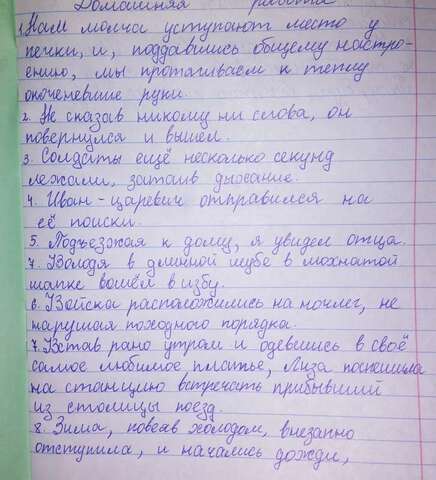 Домашняя работа
1. Нам молча уступают место у
печки, и, поддавшись общему настро-
ению, мы протягиваем к теплу
окоченевшие руки.
2. Не сказав никому ни слова, он
повернулся и вышел.
3. Солдаты ещё несколько секунд
лежали, затаив дыхание.
4. Иван-царевич отправился на
её поиски.
5. Подъезжая к дому, я увидел отца.
7. Володя в длиной шубе в мохнатой
шапке вошёл в избу.
6. Войска расположились на ночлег, не
нарушая походного порядка.
7. Встав рано утром и одевшись в своё
самое любимое платье, Лиза поспешила
на станцию встречать прибывший
из столицы поезд.
8. Зима, повеяв холодом, внезапно
отступила, и начались дожди,